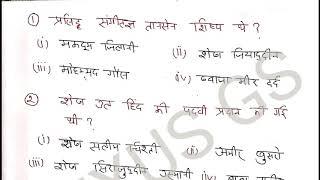 ① प्रसिद्ध संगीतज्ञ तानसेन शिष्य थे ?
(i) मकदूम जिलानी (ii) शेख जियाउद्दीन
(iii) मोहम्मद गौस (iv) ख्वाजा मीर दर्द
② शेख उल हिंद की पदवी प्रदान की गई
थी ?
(i) शेख सलीम चिश्ती (ii) अमीर खुसरो
(iii) शेख सिराजुद्दीन उस्मानी (iv) बाबा
NEXUS GS